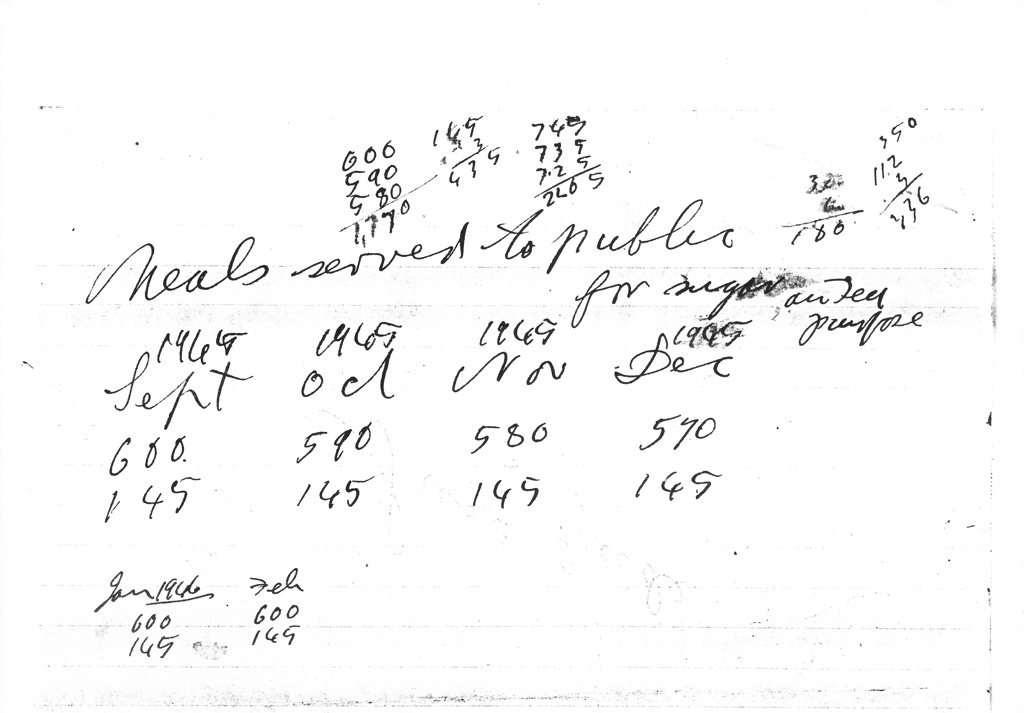 600
590
580
1,770
145
3
435
745
735
725
2205
180
350
112
3
336
Meals served to public
for sugar
purpose
1945 1945 1945 1945
Sept Oct Nov Dec
600 590 580 570
145 145 145 145
Jan 1946 Feb
600 600
145 145